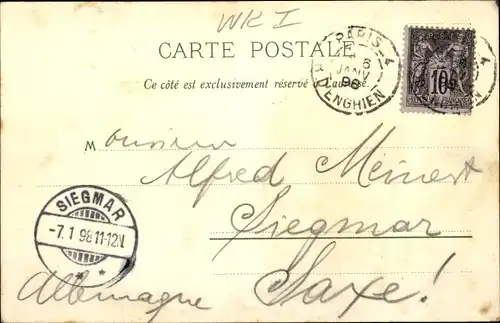 WK I
CARTE POSTALE
Ce côté est exclusivement réservé à l'adresse.
PARIS
6
JANV
98
R. D'ENGHIEN
10
Monsieur
Alfred Meinert
Siegmar
Saxe!
Allemagne
SIEGMAR
-7.1 98 11-12V.
* *